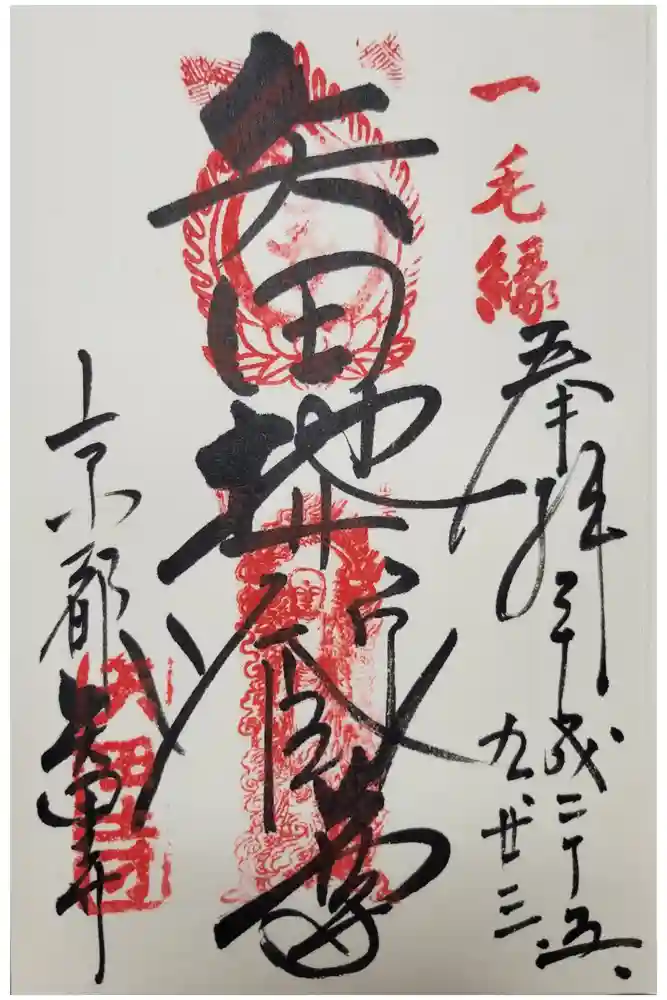 一毛縁
奉拝 平成二十五
九 廿三
矢田地蔵尊
京都矢田寺